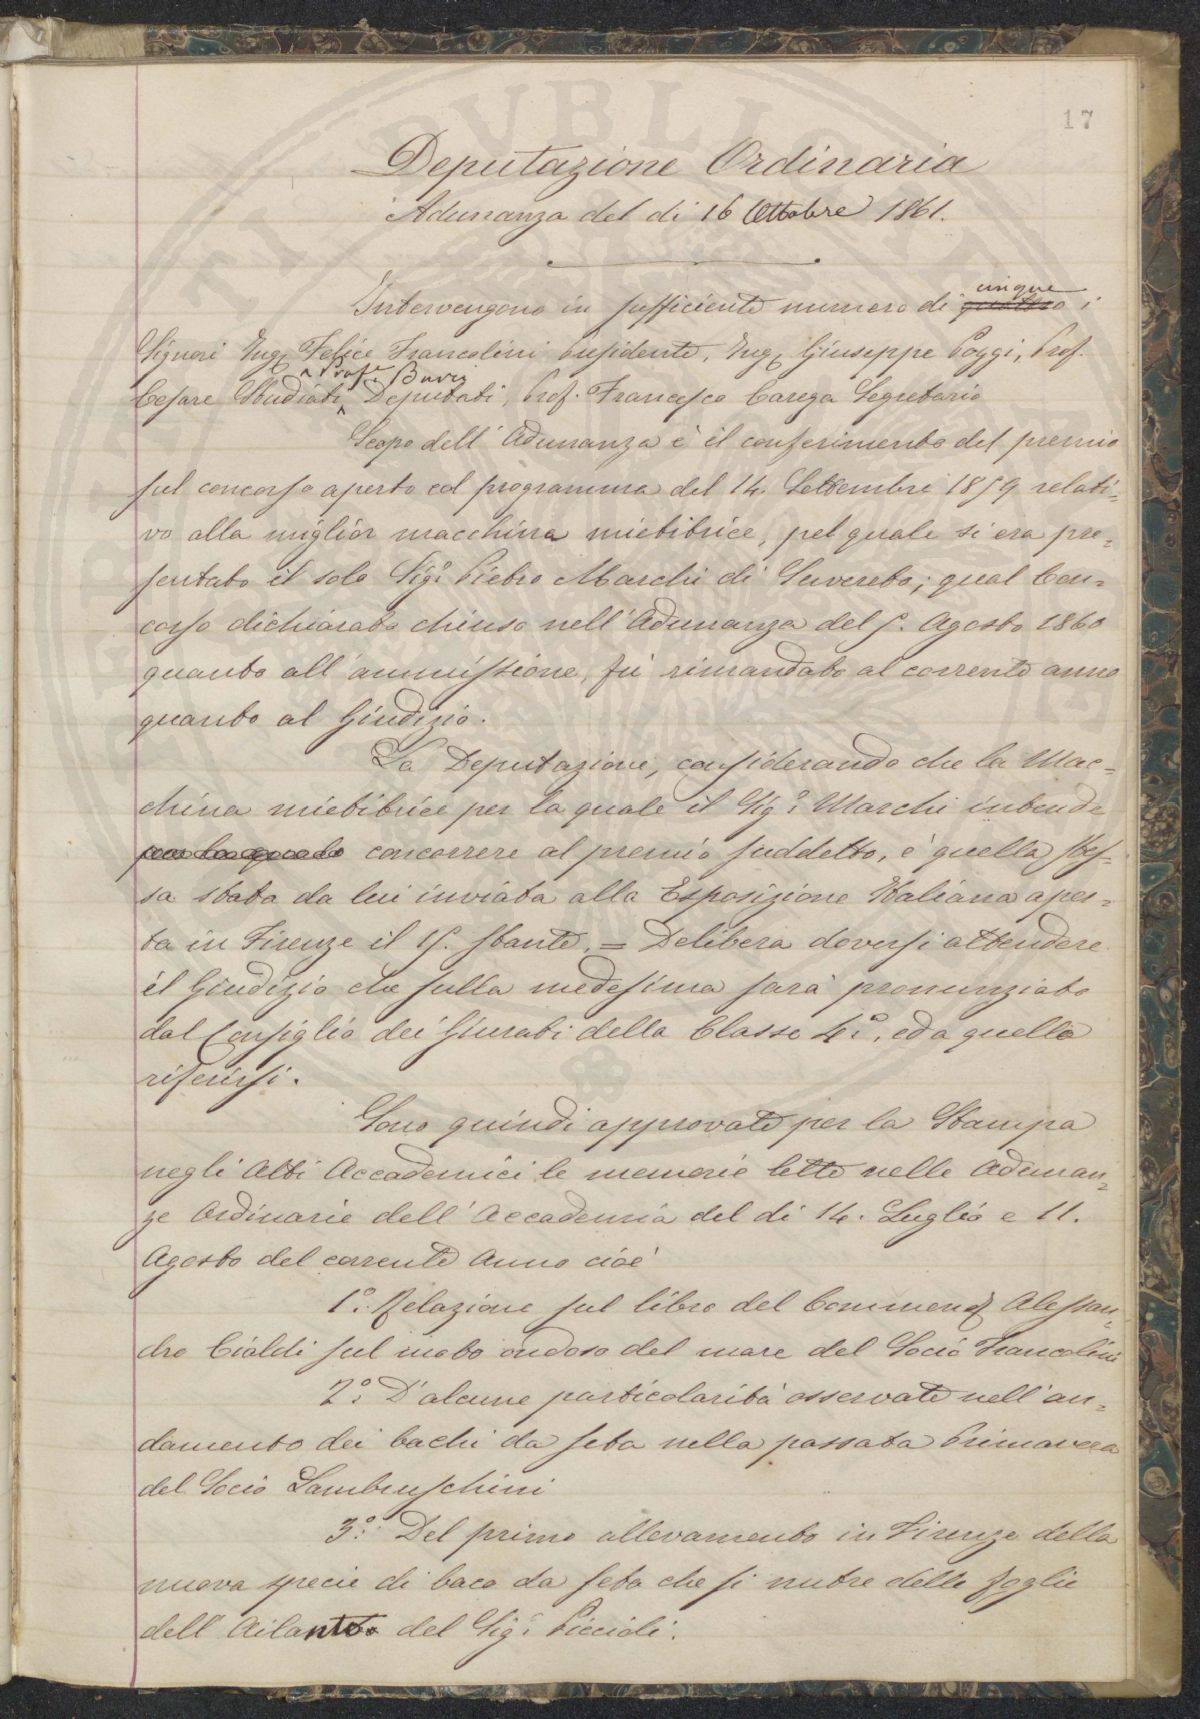 17
Deputazione Ordinaria
Adunanza del dì 16 Ottobre 1861.
Intervengono in sufficiente numero di quattro cinque i
Signori Ing. Felice Francolini Presidente, Ing. Giuseppe Poggi, Prof.
Cesare Studiati, Prof. Buriz Deputati, Prof. Francesco Carega Segretario
Scopo dell'Adunanza è il conferimento del premio
sul concorso aperto col programma del 14. Settembre 1859 relati=
vo alla miglior macchina mietitrice, pel quale si era pre=
sentato il solo Sig.r Pietro Marchi di Suvereto; qual Con=
corso dichiarato chiuso nell'Adunanza del 5. Agosto 1860
quanto all'ammissione, fù rimandato al corrente anno
quanto al Giudizio.
La Deputazione, considerando che la Mac=
china mietitrice per la quale il Sig.r Marchi intende
per la quale concorrere al premio suddetto, è quella stes=
sa stata da lui inviata alla Esposizione Italiana aper=
ta in Firenze il 15. stante, = Delibera doversi attendere
il Giudizio che sulla medesima sarà pronunziato
dal Consiglio dei Giurati della Classe 4.a, ed a quello
riferirsi.
Sono quindi approvate per la Stampa
negli Atti Accademici le memorie lette nelle Adunan=
ze Ordinarie dell'Accademia del dì 14. Luglio e 11.
Agosto del corrente Anno cioè
1.o Relazione sul libro del Commend. Alessan=
dro Cialdi sul moto ondoso del mare del Socio Francolini
2.o D'alcune particolarità osservate nell'an=
damento dei bachi da seta nella passata Primavera
del Socio Lambruschini
3.o Del primo allevamento in Firenze della
nuova specie di baco da seta che si nutre delle foglie
dell'Ailanto del Sig.r Piccioli.